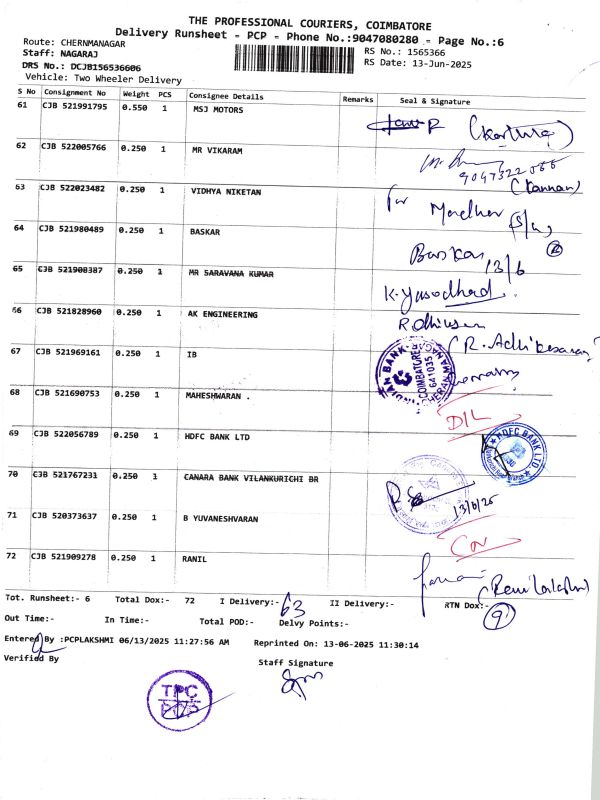 THE PROFESSIONAL COURIERS, COIMBATORE
Delivery Runsheet - PCP - Phone No.:9047080280 - Page No.:6
Route: CHERNMANAGAR
RS No.: 1565366
Staff: NAGARAJ
RS Date: 13-Jun-2025
DRS No.: DCJB156536606
Vehicle: Two Wheeler Delivery
S No Consignment No Weight PCS Consignee Details Remarks Seal & Signature
61 CJB 521991795 0.550 1 MSJ MOTORS
62 CJB 522005766 0.250 1 MR VIKARAM
(Kannan)
63 CJB 522023482 0.250 1 VIDHYA NIKETAN
for
64 CJB 521980489 0.250 1 BASKAR
Baskar
13/6
65 CJB 521908387 0.250 1 MR SARAVANA KUMAR
K. Yasodhad
66 CJB 521828960 0.250 1 AK ENGINEERING
67 CJB 521969161 0.250 1 IB
INDIAN BANK
COIMBATORE
641035
68 CJB 521690753 0.250 1 MAHESHWARAN .
D/L
69 CJB 522056789 0.250 1 HDFC BANK LTD
HDFC BANK LTD
70 CJB 521767231 0.250 1 CANARA BANK VILANKURICHI BR
13/6/25
71 CJB 520373637 0.250 1 B YUVANESHVARAN
72 CJB 521909278 0.250 1 RANIL
Tot. Runsheet:- 6 Total Dox:- 72 I Delivery:- 63 II Delivery:- RTN Dox:- 9
Out Time:- In Time:- Total POD:- Delvy Points:-
Entered By :PCPLAKSHMI 06/13/2025 11:27:56 AM Reprinted On: 13-06-2025 11:30:14
Verified By Staff Signature
TPC
PCP